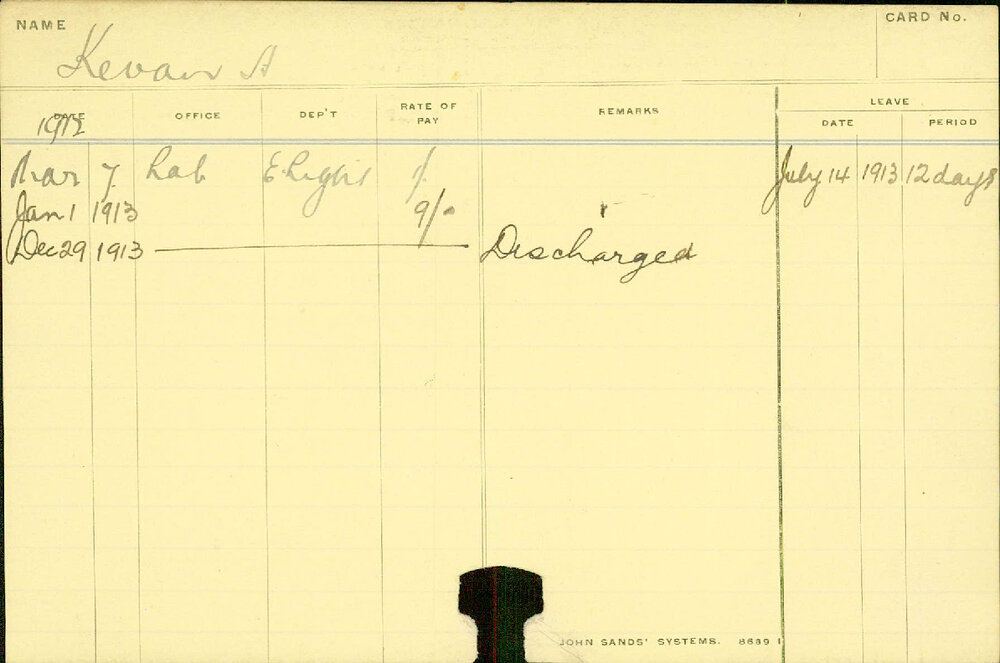 NAME
CARD No.
Kevan A
DATE OFFICE DEP'T RATE OF PAY REMARKS LEAVE
DATE PERIOD
1912
Mar 7 Lab July 14 1913 12 days
Jan 1 1913 9/-
Dec 29 1913 Discharged
JOHN SANDS' SYSTEMS. 8689